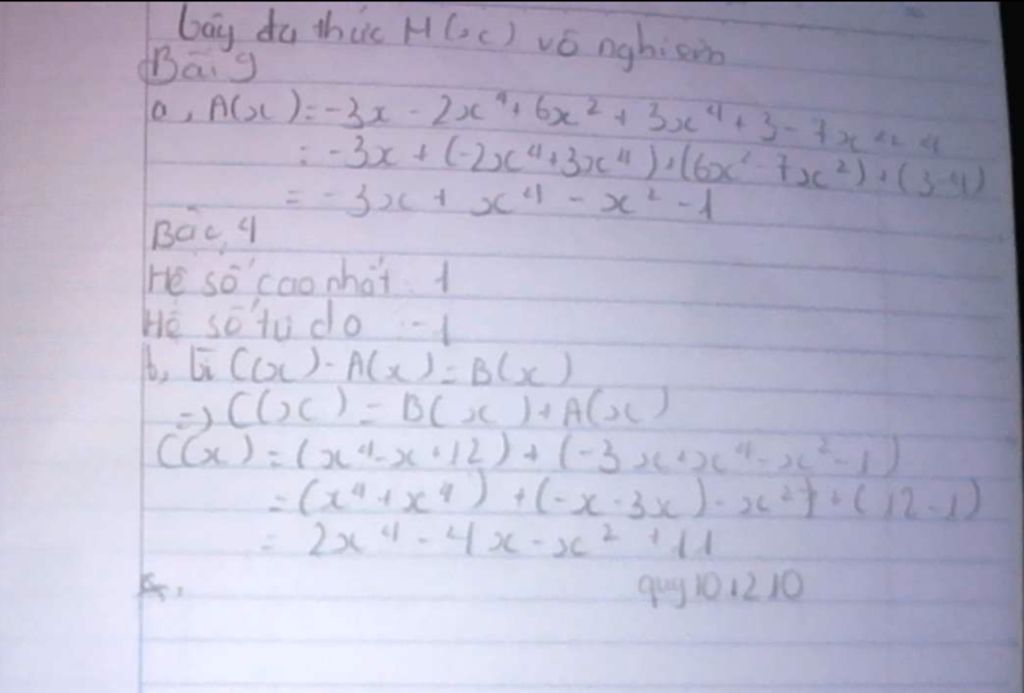 Vậy đa thức H(x) vô nghiệm
Bài 9
a, A(x) = -3x - 2x⁴ + 6x² + 3x⁴ + 3 - 7x² - 4
= -3x + (-2x⁴+3x⁴) + (6x² - 7x²) + (3-4)
= -3x + x⁴ - x² - 1
Bậc 4
Hệ số cao nhất : 1
Hệ số tự do : -1
b, C(x) - A(x) = B(x)
=> C(x) = B(x) + A(x)
C(x) = (x⁴ - x + 12) + (-3x + x⁴ - x² - 1)
= (x⁴ + x⁴) + (-x - 3x) - x² + (12 - 1)
= 2x⁴ - 4x - x² + 11
quy101210